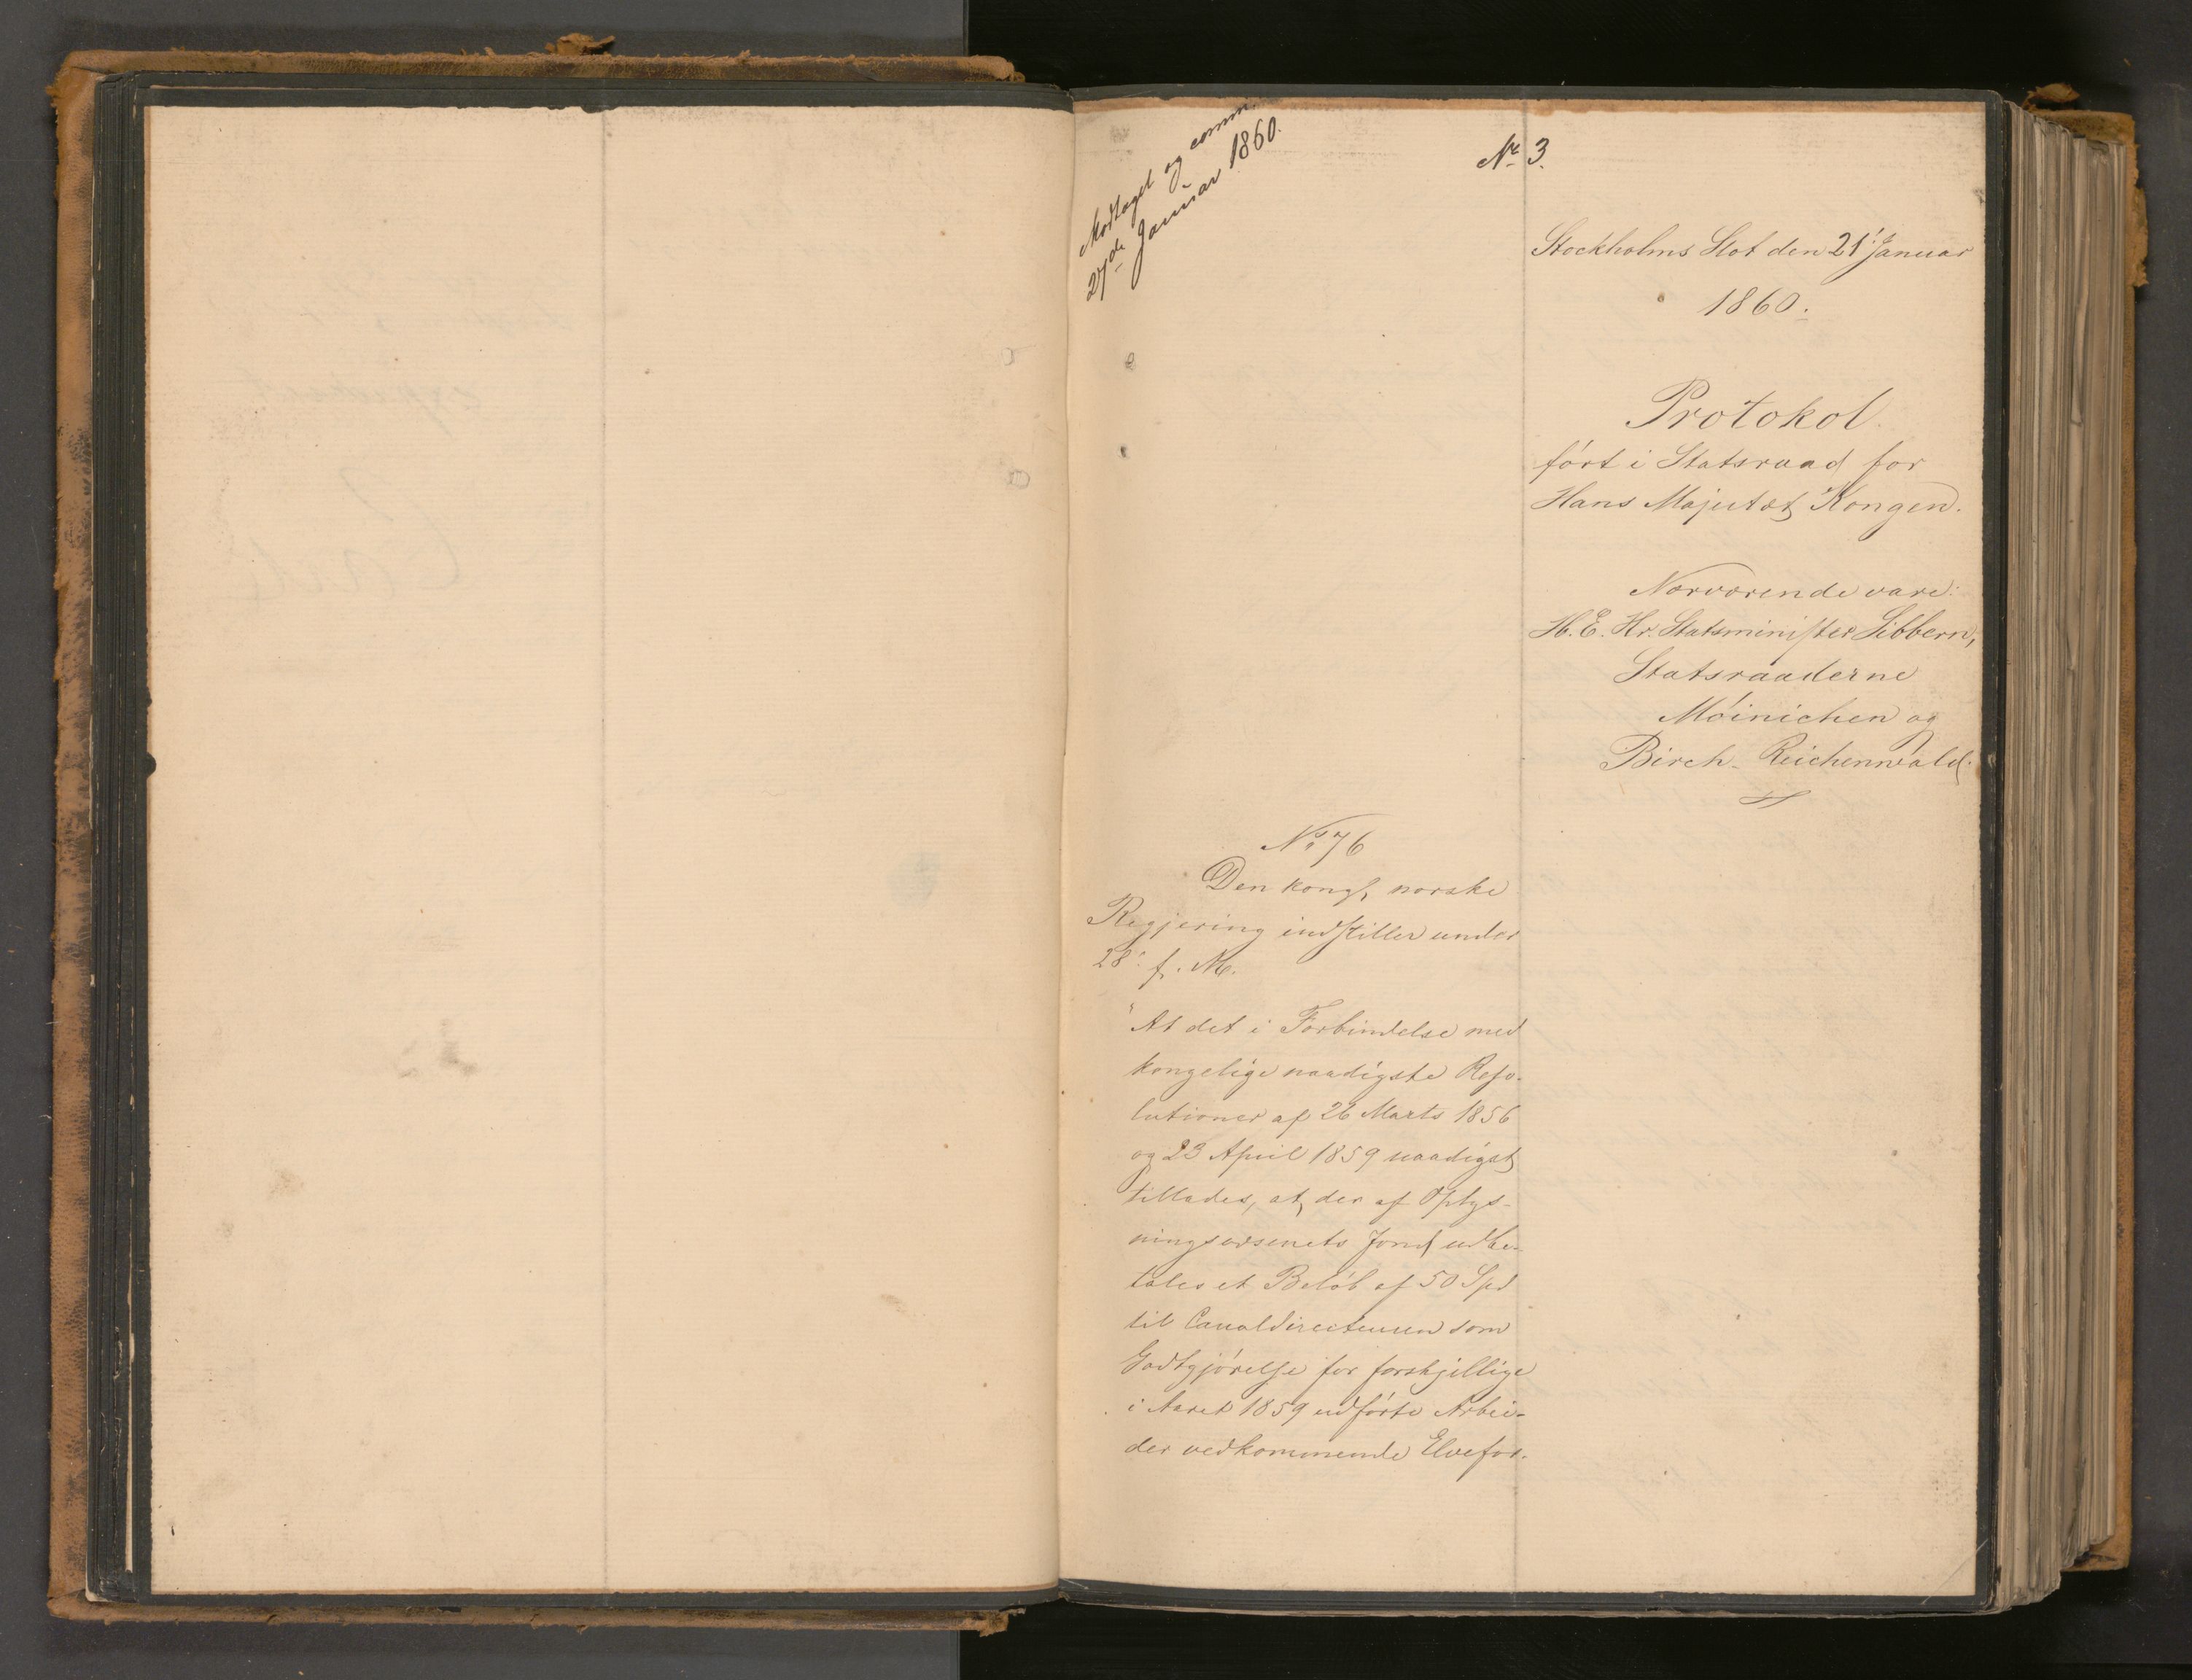 Modtaget og comm.
27de Januar 1860.
No 3.
Stockholms Slot den 21' Januar
1860.
Protokol
ført i Statsraad for
Hans Majestæt Kongen.
Nærværende vare:
H. E. Hr. Statsminister Sibbern,
Statsraaderne
Möinichen og
Birch-Reichenwald.
No 76
Den kongl. norske
Regjering indstiller under
28' f. M.
"At det i Forbindelse med
kongelige naadigste Reso-
lutioner af 26 Marts 1856
og 23 April 1859 naadigst
tillades, at der af Oplys-
ningsvæsenets Fond udbe-
tales et Beløb af 50 Spd
til Canaldirecteuren som
Godtgjørelse for forskjellige
i Aaret 1859 udførte Arbei-
der vedkommende Elvefor-